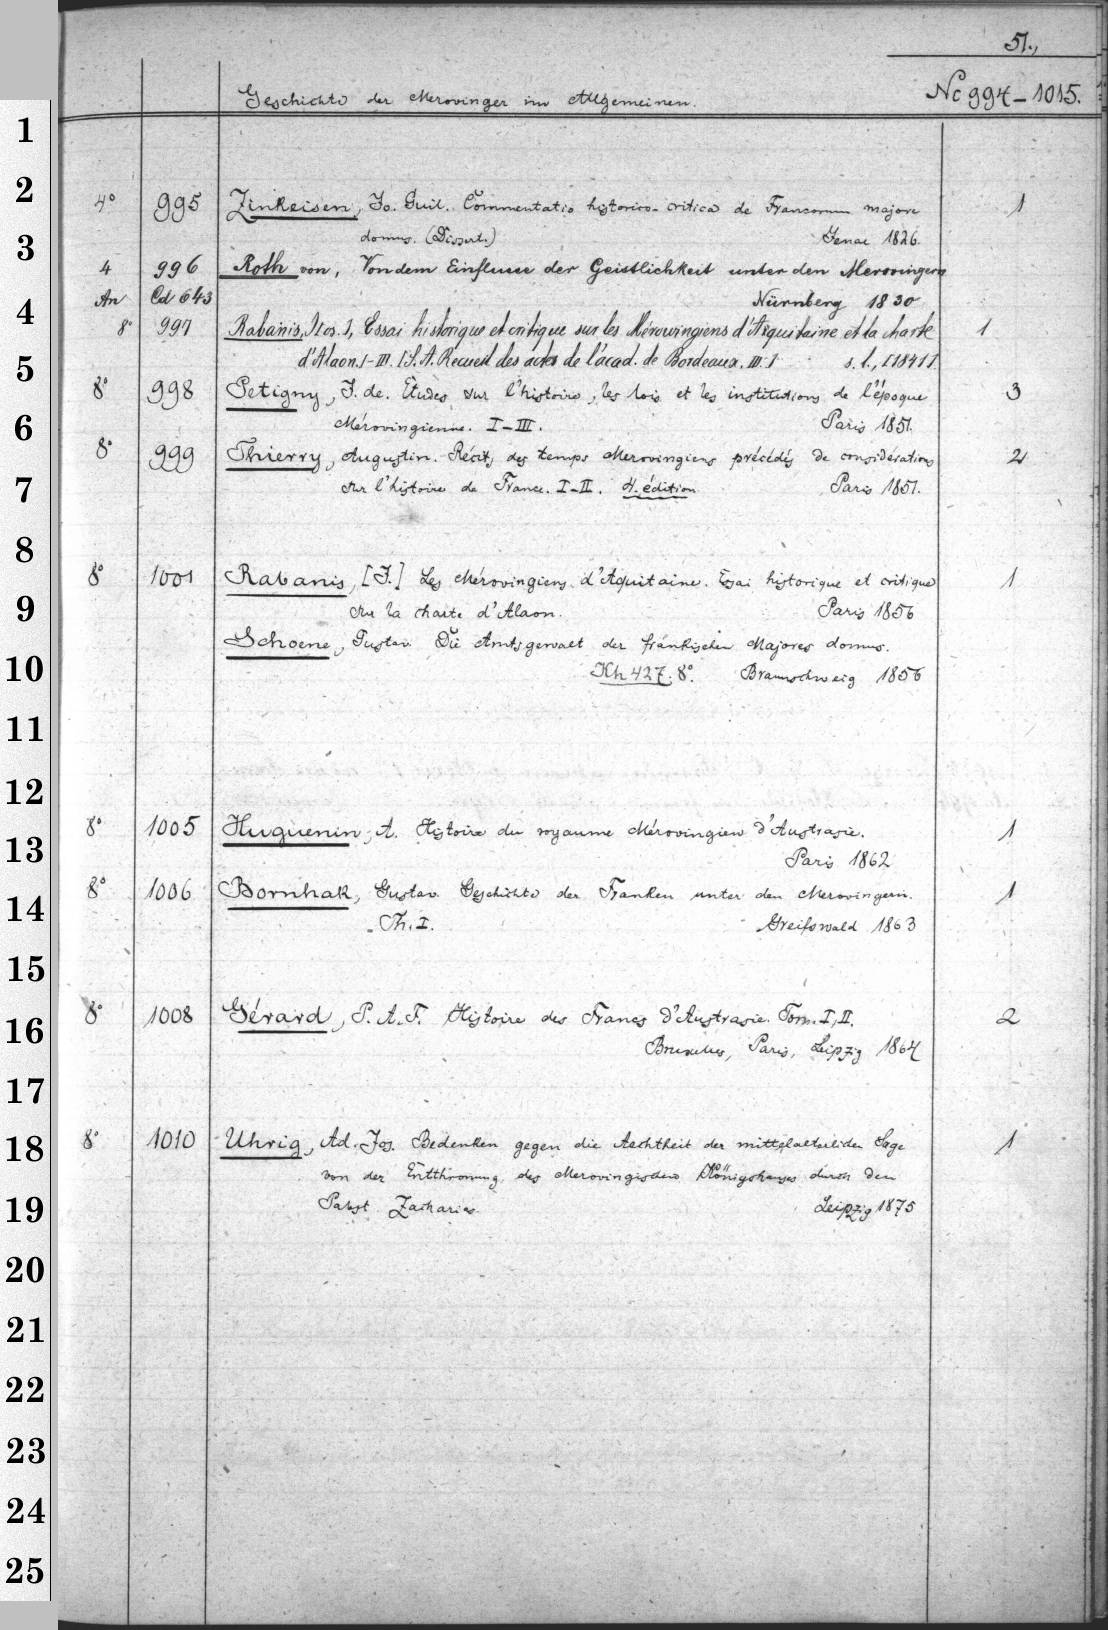 51.,
Geschichte der Merovinger im Allgemeinen.
Nc 994-1015.
4° 995 Zinkeisen, Jo. Guil. Commentatio historico-critica de Francorum majore 1
domus. (Dissert.) Jenae 1826.
4 996 Roth von, Von dem Einflusse der Geistlichkeit unter den Merovingern
An Cd 643 Nürnberg 1830
8° 997 Rabanis, J[os.], Essai historique et critique sur les Mérovingiens d'Aquitaine et la charte 1
d'Alaon. I-III. [S. A. Recueil des actes de l'acad. de Bordeaux. III.] s. l., [1841].
8° 998 Petigny, J. de. Études sur l'histoire, les lois et les institutions de l'époque 3
Mérovingienne. I-III. Paris 1851.
8° 999 Thierry, Augustin. Récits des temps Merovingiens précédés de considérations 2
sur l'histoire de France. I-II. 4. édition Paris 1851.
8° 1001 Rabanis, [J.] Les Mérovingiens d'Aquitaine. Essai historique et critique 1
sur la charte d'Alaon. Paris 1856
Schoene, Gustav. Die Amtsgewalt der fränkischen Majores domus.
Kh 427. 8°. Braunschweig 1856
8° 1005 Huguenin, A. Histoire du royaume Mérovingien d'Austrasie. 1
Paris 1862
8° 1006 Bornhak, Gustav. Geschichte der Franken unter den Merovingern. 1
Th. I. Greifswald 1863
8° 1008 Gérard, P. A. F. Histoire des Francs d'Austrasie. Tom. I, II. 2
Bruxelles, Paris, Leipzig 1864
8° 1010 Uhrig, Ad. Jos. Bedenken gegen die Aechtheit der mittelalterlichen Sage 1
von der Entthronung des Merovingischen Königshauses durch den
Pabst Zacharias. Leipzig 1875
1
2
3
4
5
6
7
8
9
10
11
12
13
14
15
16
17
18
19
20
21
22
23
24
25